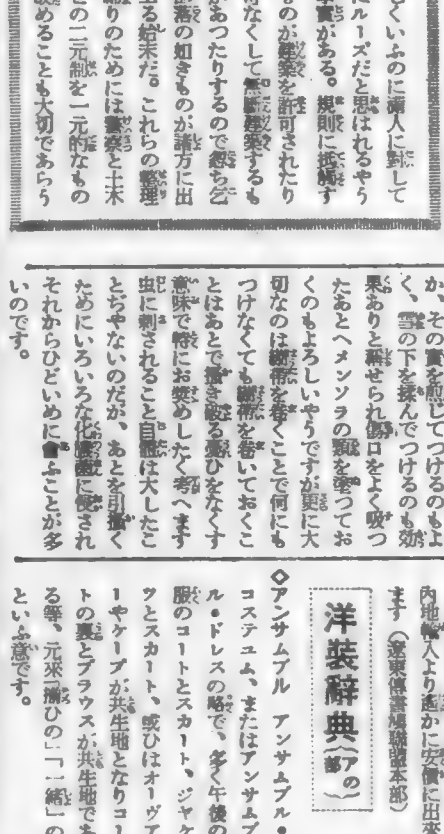 しくいふのに満人に對して
にルーズだと思はれるやう
事實がある。規則に抵觸す
ものが建築を許可されたり
得なくして無斷建築するも
があつたりするので忽ち乞
部落の如きものが諸方に出
る始末だ。これらの整理
りのためには警察と土木
この二元制を一元的なもの
めることも大切であらう
か、その實を煎じてつけるのもよ
く、雪の下を揉んでつけるのも効
果ありと稱せられ傷口をよく吸つ
たあとへメンソラの類を塗つてお
くのもよろしいやうですが更に大
切なのは繃帶を巻くことで何にも
つけなくても繃帶を巻いておくこ
とはあとで搔き破る憂ひをなくす
意味で特にお奬めしたく考へます
虫に刺されること自體は大したこ
とぢやないのだが、あとを引搔く
ためにいろいろな化膿菌に侵され
それからひどいめに會ふことが多
いのです。
内地輸入より遙かに安價に出來
ます(遼東傳書鳩聯盟本部)
洋裝辭典(アの部)
◇アンサムブル アンサムブル・
コステユム、またはアンサムブ
ル・ドレスの略で、多く午後の
服のコートとスカート、ジヤケ
ツとスカート、或ひはオーヴア
ーやケープが共生地となりコー
トの裏とブラウスが共生地であ
る等、元來一揃ひの」「一緒」の
といふ意です。